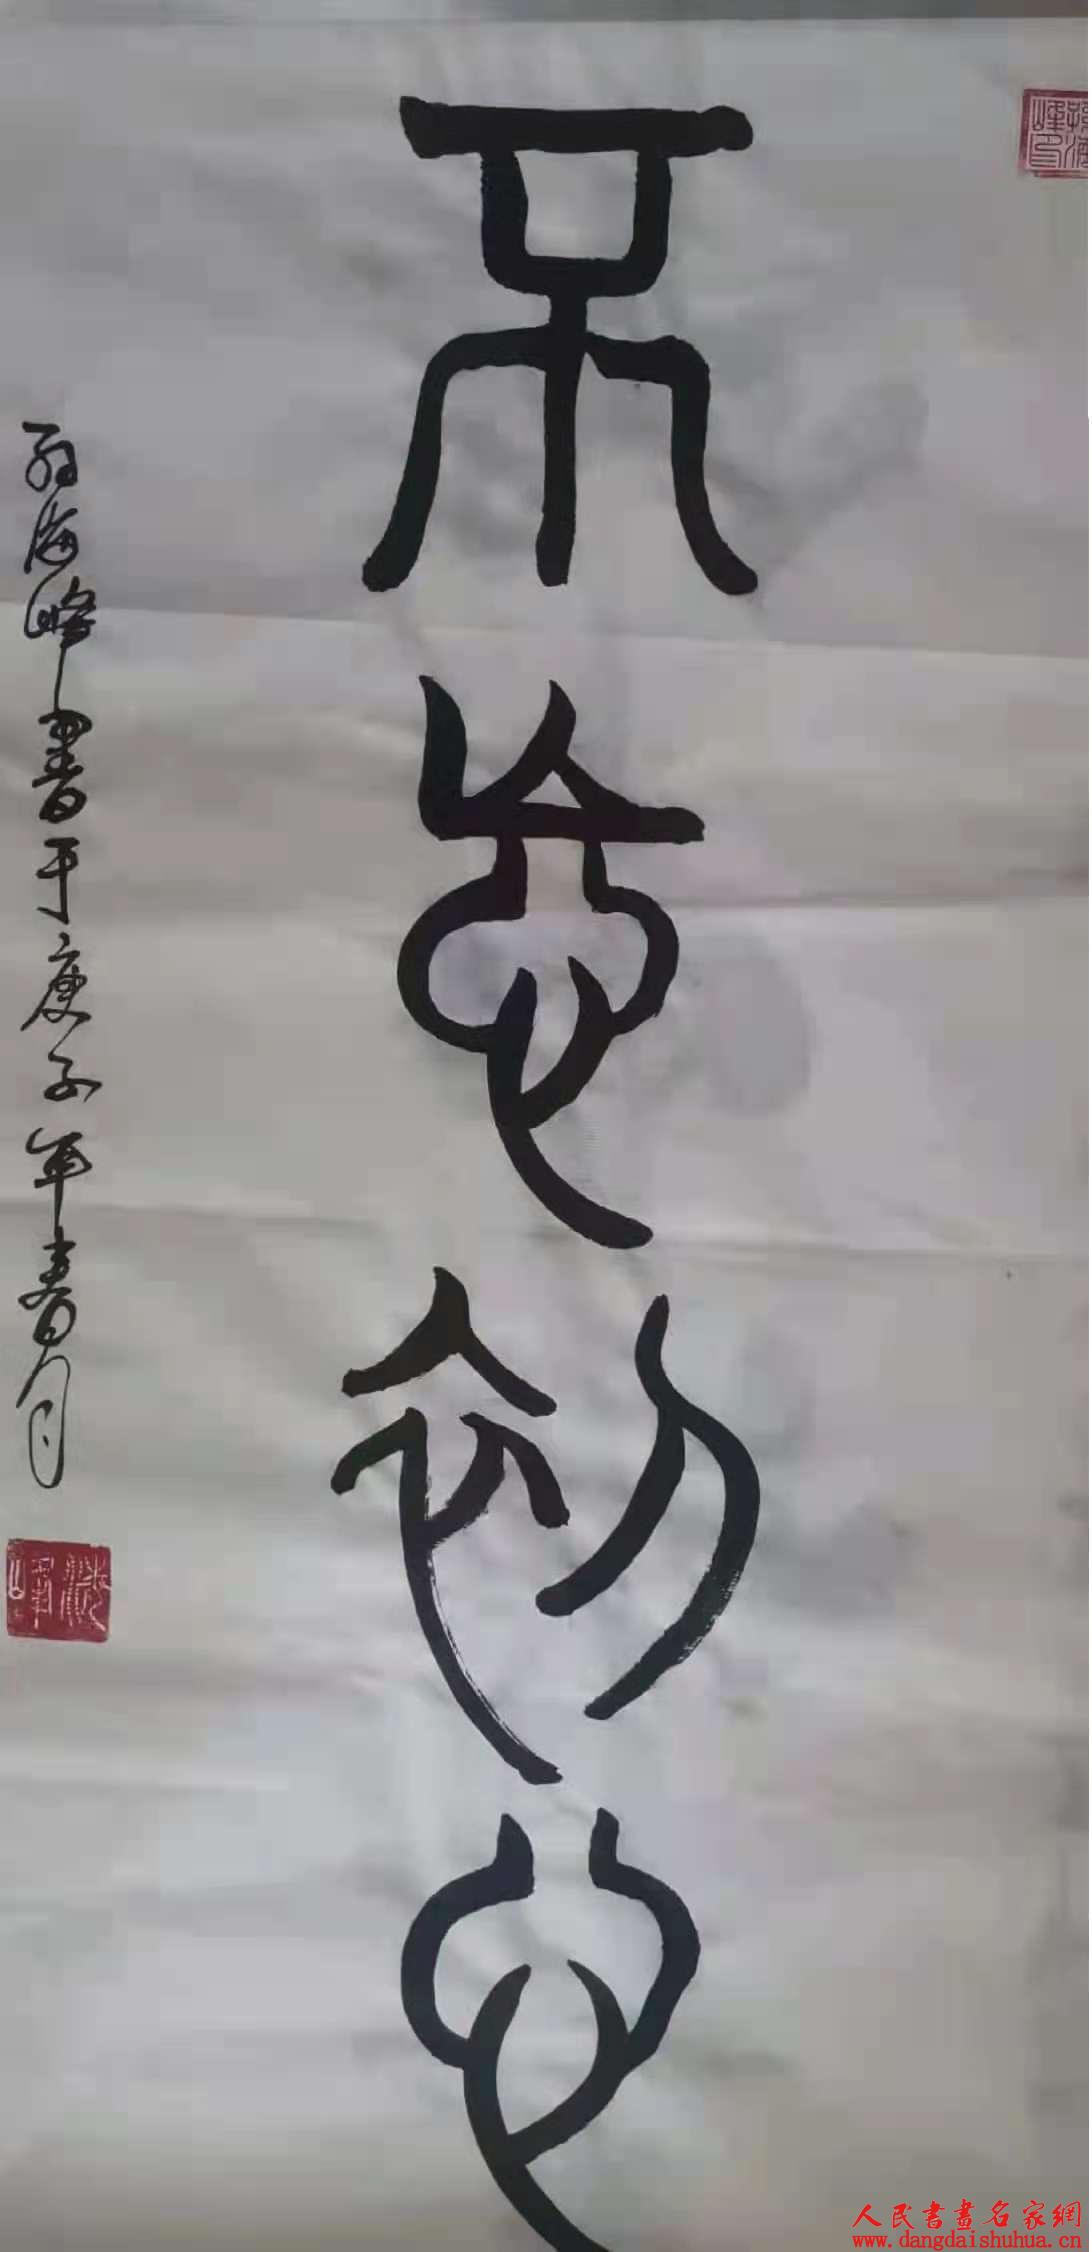 不忘初心
孙海峰书于庚子年春月
孙海峰印
海峰
人民書畫名家網
www.dangdaishuhua.cn